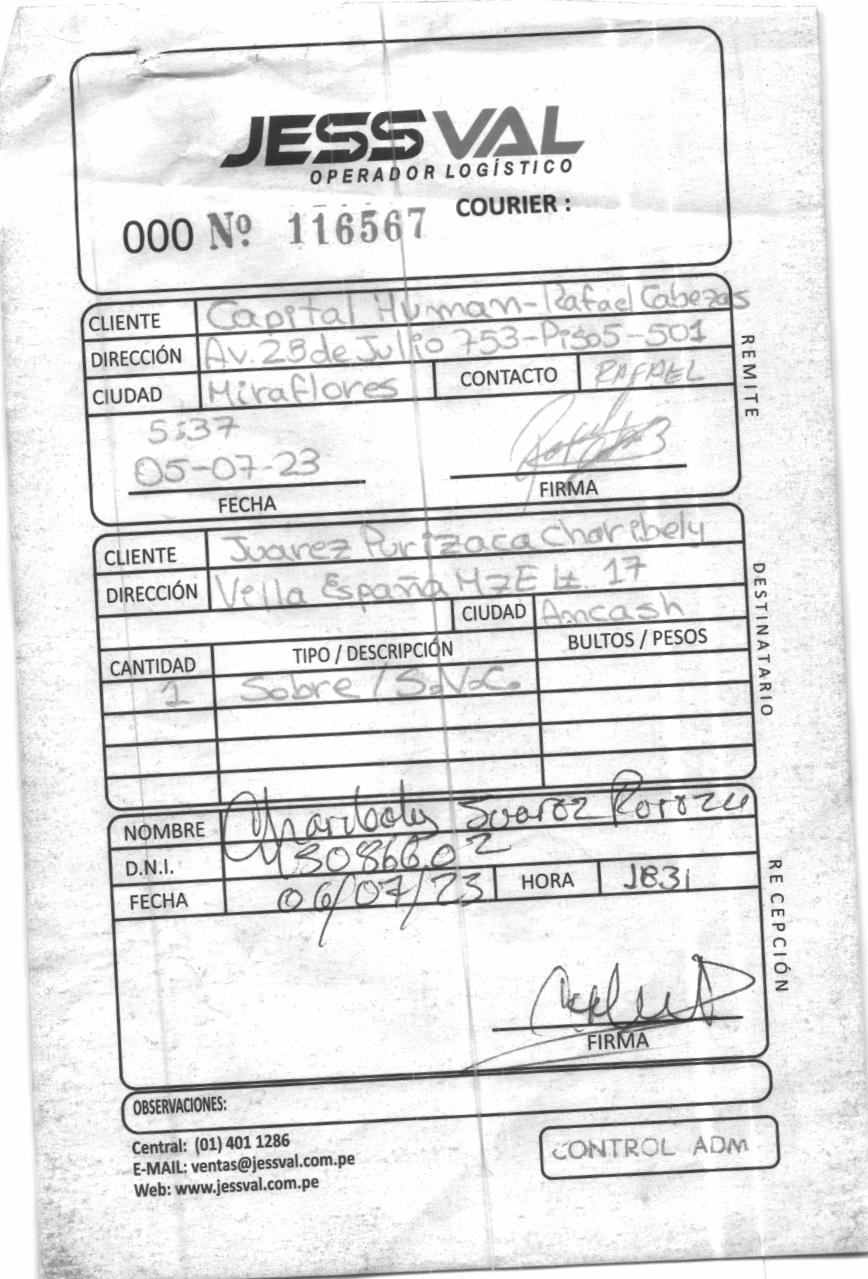 JESSVAL
OPERADOR LOGÍSTICO
000 Nº 116567 COURIER :
REMITE
CLIENTE Capital Human-Rafael Cabezas
DIRECCIÓN Av. 28 de Julio 753-Piso5-501
CIUDAD Miraflores CONTACTO RAFAEL
5:37
05-07-23
FECHA FIRMA
DESTINATARIO
CLIENTE Juarez Purizaca Charibely
DIRECCIÓN Villa España MzE Lt. 17
CIUDAD Ancash
CANTIDAD TIPO / DESCRIPCIÓN BULTOS / PESOS
1 Sobre / S.V.C.
RECEPCIÓN
NOMBRE Juarez
D.N.I.
FECHA 06/07/23 HORA 1831
FIRMA
OBSERVACIONES:
Central: (01) 401 1286
E-MAIL: ventas@jessval.com.pe
Web: www.jessval.com.pe
CONTROL ADM